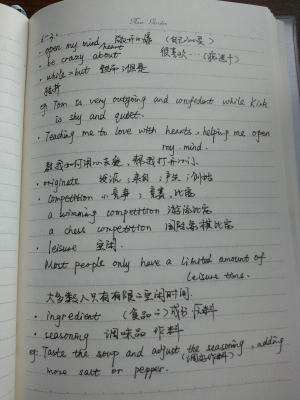 Time Garden
5-3.
· open my mind 敞开心扉 (自己心灵)
heart
· be crazy about 很喜欢… (痴迷于)
· while = but 转折
eg Tom is very outgoing and confident while Kirk
is shy and quiet.
· Teaching me to love with hearts, helping me open
my mind.
教我如何用心去爱, 帮我打开心门.
· originate 发源; 来自; 产生; 创始
· competition n. 竞争; 竞赛, 比赛
a swimming competition 游泳比赛
a chess competition 国际象棋比赛
· leisure 空闲
Most people only have a limited amount of
leisure time.
大多数人只有有限的空闲时间.
· ingredient (食品的)成分 原料
· seasoning 调味品 作料
eg: Taste the soup and adjust the seasoning, adding
more salt or pepper.